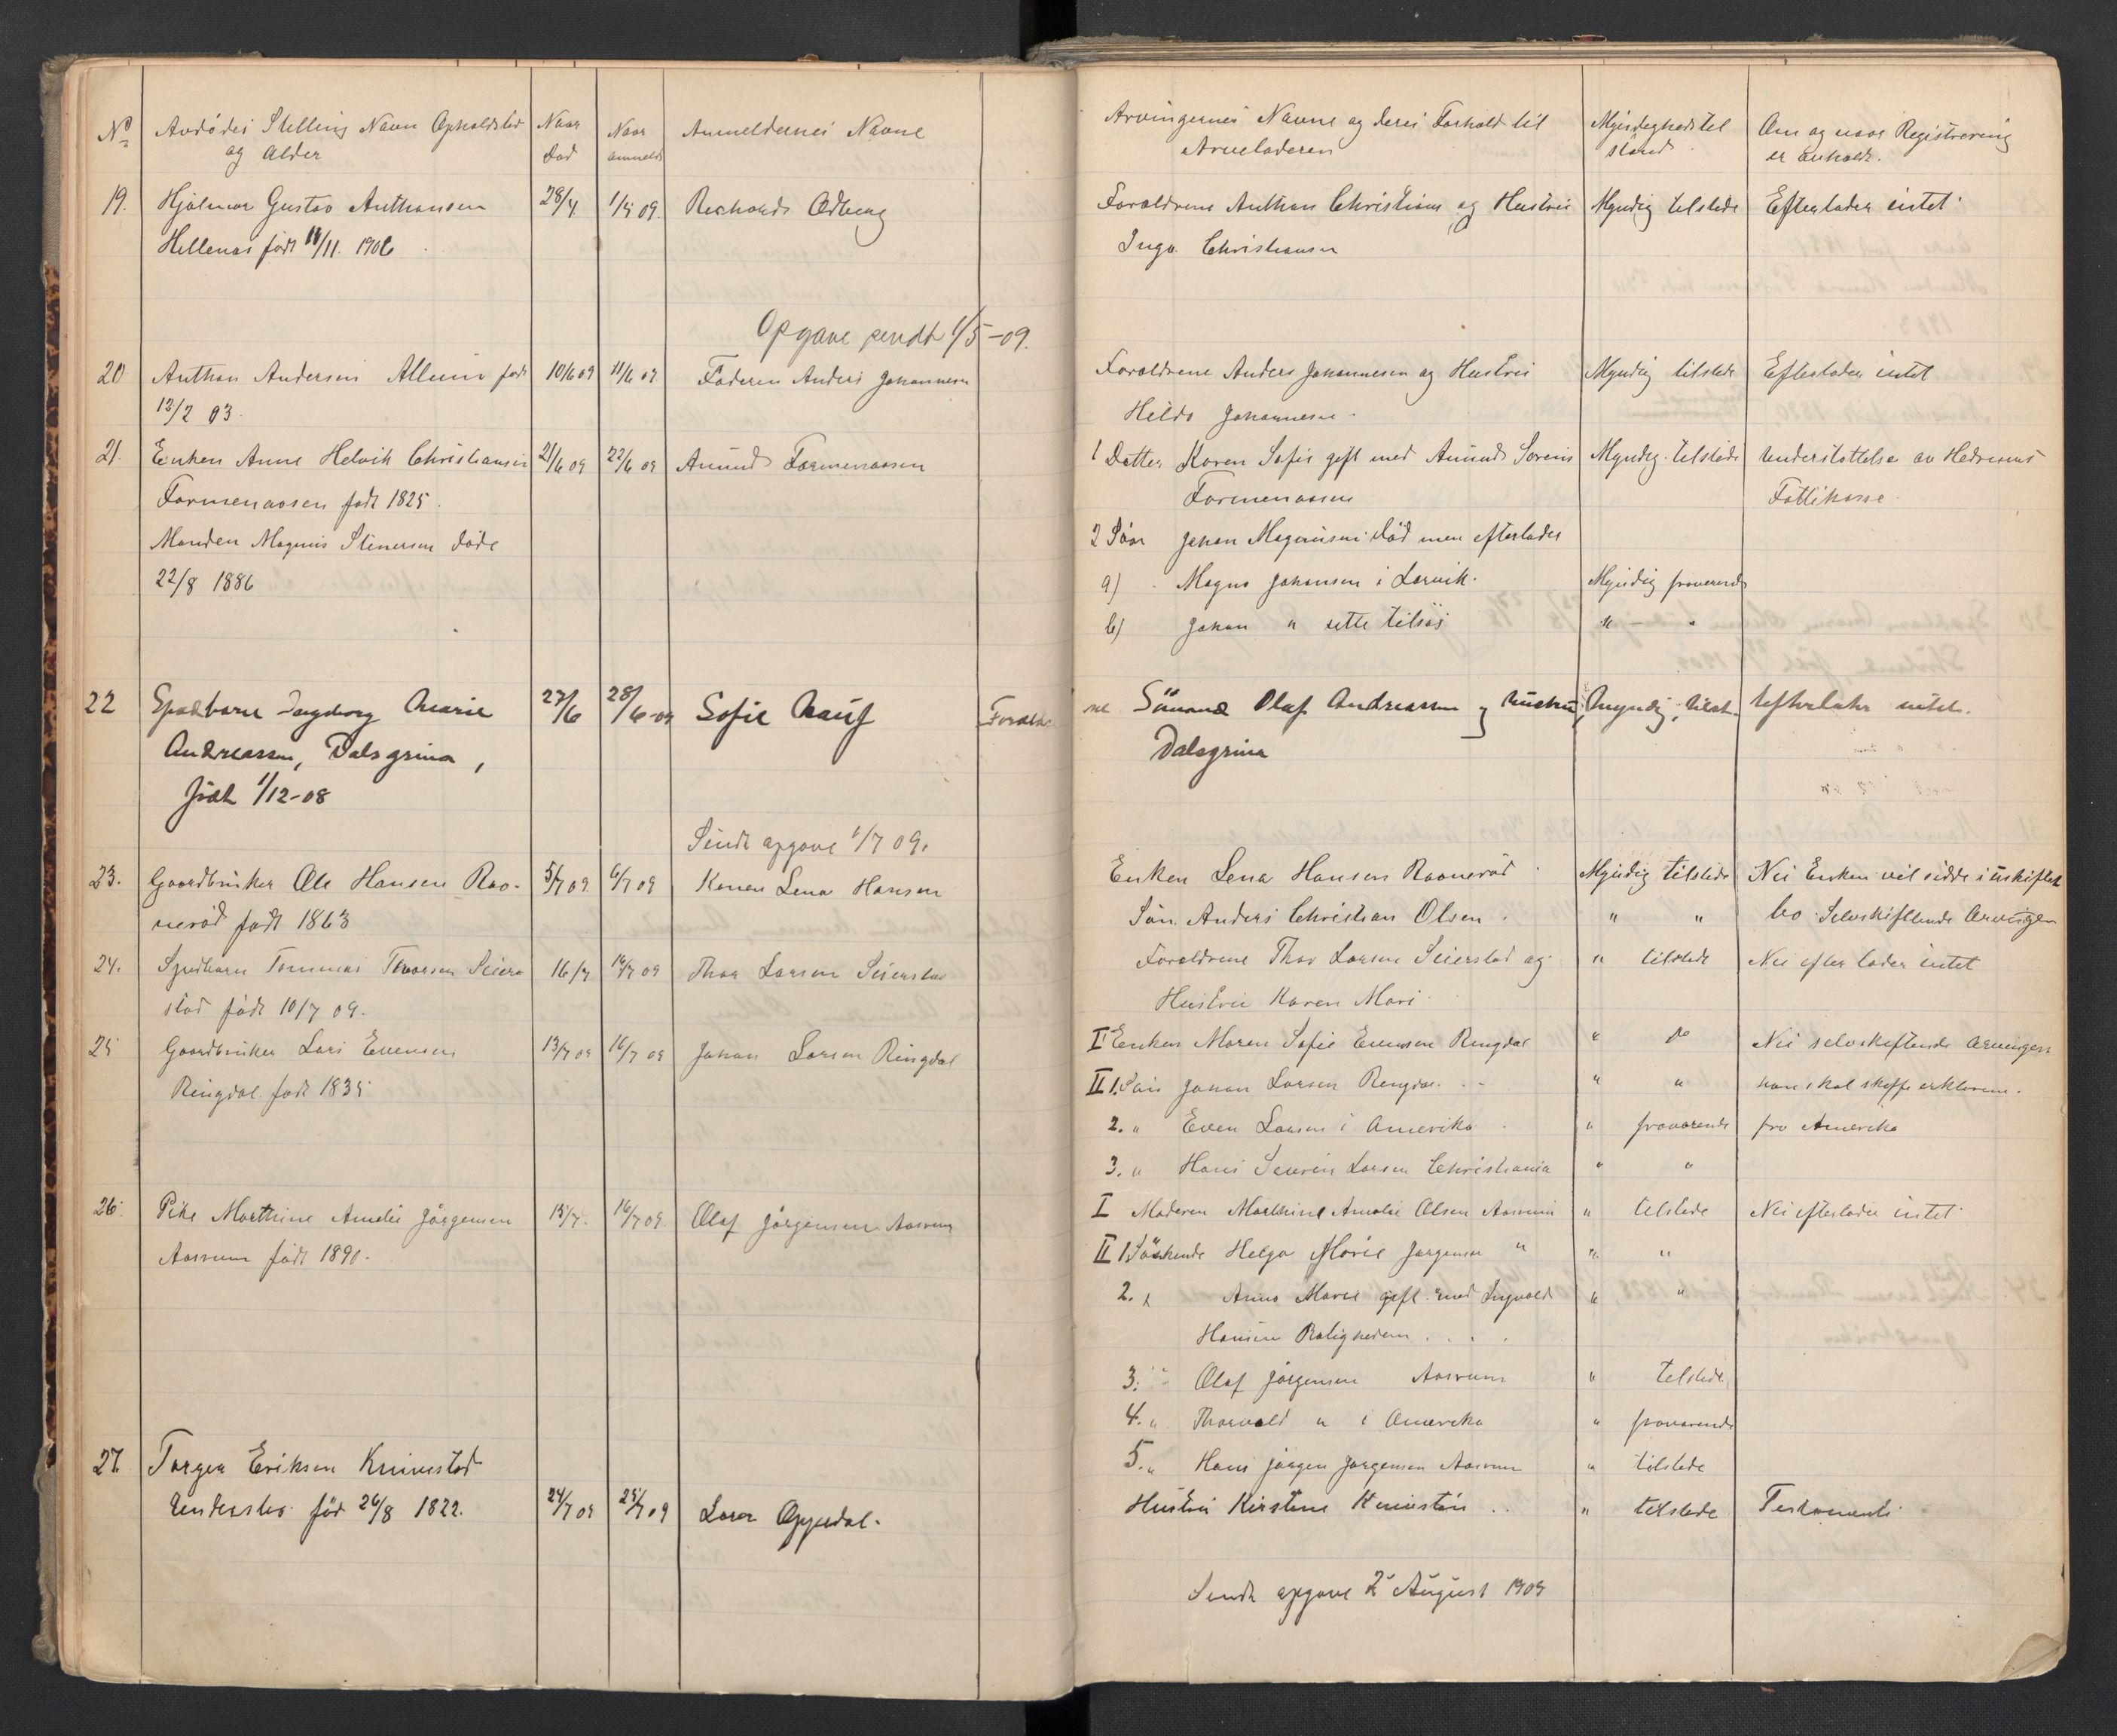 No Avdødes Stilling Navn Opholdsted og Alder
Naar død
Naar anmeldt
Anmeldernes Navne
Arvingernes Navne og deres Forhold til Arveladeren
Myndighedstilstand
Om og naar Registrering er anholdt.
19. Hjalmar Gustav Anthonsen 28/4 1/5 09. Richard Ødberg
Hellenas født 11/11. 1906
Forældrene Anthon Christians og Hustru Myndig tilstede Efterlader intet
Inga Christiansen
Opgave sendt 1/5-09.
20 Anthon Andersen født 10/6 09 11/6 09 Faderen Anders Johannesen
13/2 03.
Forældrene Anders Johannesen og Hustru Myndig tilstede Efterlader intet
Hilda Johannesen
21. Enken Anne Helvik Christiansen 21/6 09 22/6 09 Amund Formenaasen
Formenaasen født 1825.
Manden Magnus Stinersen døde
22/8 1886
1 Datter Karen Sofie gift med Amund Sørens Myndig tilstede Understøttelse av Hedrums
Formenaasen Fattikasse
2 Søn Johan Magnusen død men efterlader
a) Magnus Johansen i Larvik. Myndig fraværende
b) Johan " sette tilsøs " — "
22 Spædbarn Ingeborg Marie 27/6 28/6-09 Sofie Foræld-
Andreassen, Dalsgrina,
født 1/12-08
ne Sømand Olaf Andreassen og hustru, Myndig, tilst. Efterlader intet.
Dalsgrina
Sendt opgave 1/7 09.
23. Gaardbruker Ole Hansen Rao- 5/7 09 6/7 09 Konen Lena Hansen
nerød født 1863
Enken Lena Hansen Raonerød Myndig tilstede Nei Enken vil sidde i uskiftet
Søn. Anders Christian Olsen. " " bo. Selvskiftende Arvinger
24. Spedbarn Tommas Thorsen Seier- 16/7 16/7 09 Thor Larsen Seierstad
stad født 10/7 09.
Forældrene Thor Larsen Seierstad og " tilstede Nei efterlader intet
Hustru Karen Mari
25 Gaardbruker Lars Evensen 13/7 09 16/7 09 Johan Larsen Ringdal
Ringdal født 1835
I Enken Maren Sofie Evensen Ringdal " do Nei selvskiftende Arvinger
II 1. Søn Johan Larsen Ringdal " " han skal skaffe erklæren.
2. " Even Larsen i Amerika " fraværende fra Amerika
3. " Hans Severin Larsen Christiania " "
26. Pike Marthine Amalie Jørgensen 15/7. 16/7 09. Olaf Jørgensen Aasrum
Aasrum født 1890.
I Moderen Marthine Amalie Olsen Aasrum " tilstede Nei efterlader intet
II 1 Søskende Helga Marie Jørgensen " " "
2. " Anna Marie gift med Ingvald " "
Hansen Boligheden
3. " Olaf Jørgensen Aasrum " tilstede
4. " Thorvald " i Amerika " fraværende
5. " Hans Jørgen Jørgensen Aasrum " tilstede
27. Torger Eriksen Knivestad
Undersbo. fød 26/8 1822. 24/7 09 25/7 09 Lars Oppedal.
Hustru Kirstine " tilstede Testament
Sendt opgave 2 August 1909